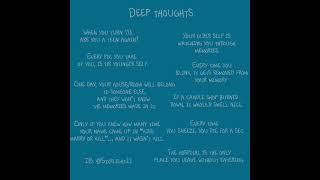 DEEP THOUGHTS
WHEN YOU TURN 113,
ARE YOU A TEEN AGAIN?
EVERY PIC YOU TAKE
OF YOU, IS UR YOUNGER SELF.
ONE DAY, YOUR HOUSE/ROOM WILL BELONG
TO SOMEONE ELSE,
AND THEY WON'T KNOW
THE MEMORIES MADE IN IT
ONLY IF YOU KNEW HOW MANY TIME
YOUR NAME CAME UP IN "KISS,
MARRY OR KILL"... AND IT WASN'T KILL
IB:
YOUR OLDER SELF IS
WATCHING YOU THROUGH
MEMORIES
EVERY TIME YOU
BLINK, IT GETS REMOVED FROM
YOUR MEMORY
IF A CANDLE SHOP BURNED
DOWN, IT WOULD SMELL NICE.
EVERY TIME
YOU SNEEZE, YOU DIE FOR A SEC
THE HOSPITAL IS THE ONLY
PLACE YOU LEAVE WITHOUT ENTERING